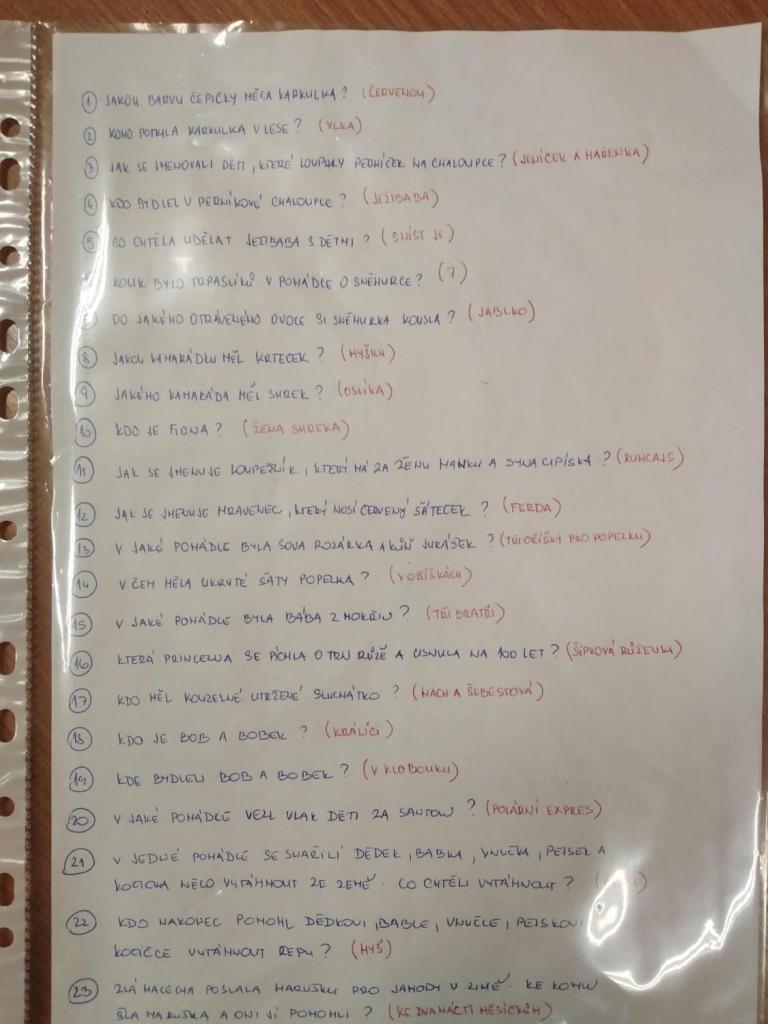 1 JAKOU BARVU ČEPIČKY MĚLA KARKULKA? (ČERVENOU)
2 KOHO POTKALA KARKULKA V LESE? (VLKA)
3 JAK SE JMENOVALI DĚTI, KTERÉ LOUPALY PERNÍČEK NA CHALOUPCE? (JENÍČEK A MAŘENKA)
4 KDO BYDLEL V PERNÍKOVÉ CHALOUPCE? (JEŽIBABA)
5 CO CHTĚLA UDĚLAT JEŽIBABA S DĚTMI? (SNÍST JE)
KOLIK BYLO TRPASLÍKŮ V POHÁDCE O SNĚHURCE? (7)
DO JAKÉHO OTRÁVENÉHO OVOCE SI SNĚHURKA KOUSLA? (JABLKO)
8 JAKOU KAMARÁDKU MĚL KRTEČEK? (MYŠKU)
9 JAKÉHO KAMARÁDA MĚL SHREK? (OSLÍKA)
10 KDO JE FIONA? (ŽENA SHREKA)
11 JAK SE JMENUJE LOUPEŽNÍK, KTERÝ MÁ ZA ŽENU MANKU A SYNA CIPÍSKA? (RUMCAJS)
12 JAK SE JMENUJE MRAVENEC, KTERÝ NOSÍ ČERVENÝ ŠÁTEČEK? (FERDA)
13 V JAKÉ POHÁDCE BYLA SOVA ROZÁRKA A KŮŇ JURÁŠEK? (TŘI OŘÍŠKY PRO POPELKU)
14 V ČEM MĚLA UKRYTÉ ŠATY POPELKA? (V OŘÍŠKÁCH)
15 V JAKÉ POHÁDCE BYLA BÁBA Z MOKŘIN? (TŘI BRATŘI)
16 KTERÁ PRINCEZNA SE PÍCHLA O TRN RŮŽE A USNULA NA 100 LET? (ŠÍPKOVÁ RŮŽENKA)
17 KDO MĚL KOUZELNÉ UTRŽENÉ SLUCHÁTKO? (MACH A ŠEBESTOVÁ)
18 KDO JE BOB A BOBEK? (KRÁLÍCI)
19 KDE BYDLELI BOB A BOBEK? (V KLOBOUKU)
20 V JAKÉ POHÁDCE VEZL VLAK DĚTI ZA SANTOU? (POLÁRNÍ EXPRES)
21 V JEDNÉ POHÁDCE SE SNAŽILI DĚDEK, BABKA, VNUČKA, PEJSEK A
KOČIČKA NĚCO VYTÁHNOUT ZE ZEMĚ. CO CHTĚLI VYTÁHNOUT?
22 KDO NAKONEC POMOHL DĚDKOVI, BABCE, VNUČCE, PEJSKOVI
KOČIČCE VYTÁHNOUT ŘEPU? (MYŠ)
23 ZLÁ MACECHA POSLALA MARUŠKU PRO JAHODY V ZIMĚ. KE KOMU
ŠLA MARUŠKA A ONI JÍ POMOHLI? (KE DVANÁCTI MĚSÍČKŮM)